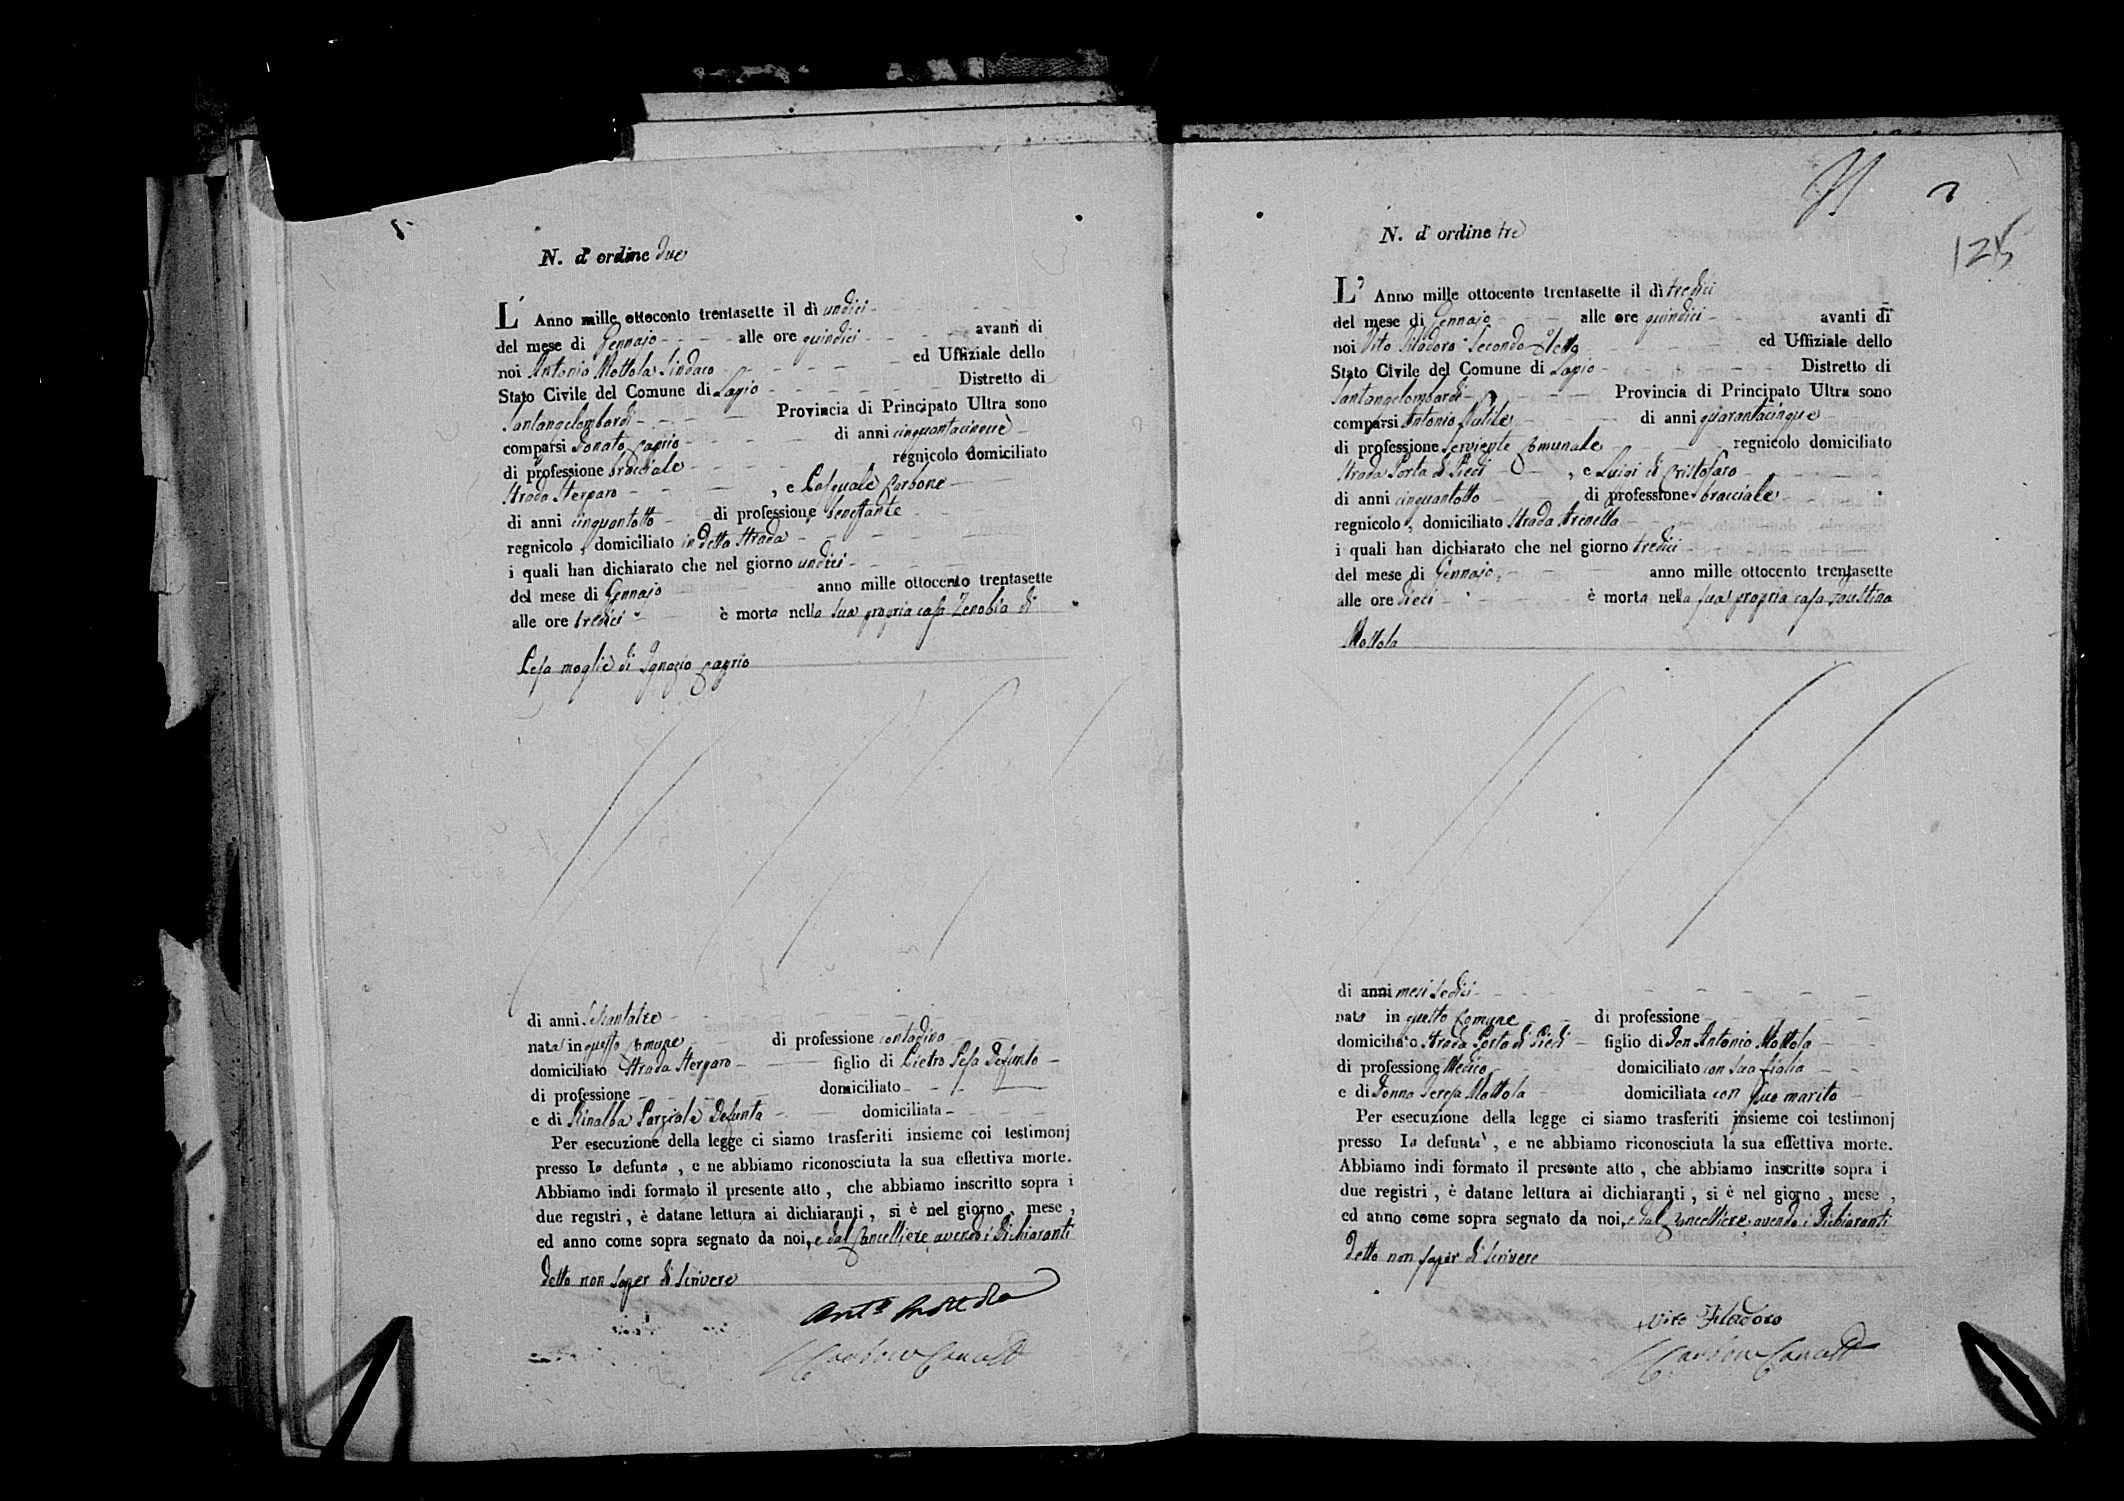 N. d' ordine due
L' Anno mille ottocento trentasette il dì undici
del mese di Gennajo alle ore quindici avanti di
noi Antonio Mottola Sindaco ed Uffiziale dello
Stato Civile del Comune di Lapio Distretto di
Santangelombardi Provincia di Principato Ultra sono
comparsi Donato Caprio di anni cinquantacinque
di professione bracciale regnicolo domiciliato
Strada Sterparo , e Pasquale Carbone
di anni cinquantotto di professione benestante
regnicolo , domiciliato in detta Strada
i quali han dichiarato che nel giorno undici
del mese di Gennajo anno mille ottocento trentasette
alle ore tredici è morta nella sua propria casa Zenobia di
Pesa moglie di Ignazio Caprio
di anni Settantatre
nata in questo Comune di professione contadina
domiciliato Strada Sterparo figlio di Pietro Pesa Defunto
di professione domiciliato
e di Rinalba Parziale Defunta domiciliata
Per esecuzione della legge ci siamo trasferiti insieme coi testimonj
presso la defunta , e ne abbiamo riconosciuta la sua effettiva morte.
Abbiamo indi formato il presente atto , che abbiamo inscritto sopra i
due registri , è datane lettura ai dichiaranti , si è nel giorno , mese ,
ed anno come sopra segnato da noi, e dal Cancelliere avendo i Dichiaranti
detto non saper di scrivere
Ant.o Mottola
125
N. d' ordine tre
L' Anno mille ottocento trentasette il dì tredici
del mese di Gennajo alle ore quindici avanti di
noi Vito Filadoro Secondo Eletto ed Uffiziale dello
Stato Civile del Comune di Lapio Distretto di
Santangelombardi Provincia di Principato Ultra sono
comparsi Antonio di anni quarantacinque
di professione Serviente Comunale regnicolo domiciliato
Strada Porta di Piedi , e Luigi di Cristofaro
di anni cinquantotto di professione bracciale
regnicolo , domiciliato Strada Arenella
i quali han dichiarato che nel giorno tredici
del mese di Gennajo anno mille ottocento trentasette
alle ore dieci è morta nella sua propria casa Faustina
Mottola
di anni mesi Sedici
nata in questo Comune di professione
domiciliato Strada Porta di Piedi figlio di Don Antonio Mottola
di professione Medico domiciliato con sua figlia
e di Donna Teresa Mattola domiciliata con suo marito
Per esecuzione della legge ci siamo trasferiti insieme coi testimonj
presso la defunta , e ne abbiamo riconosciuta la sua effettiva morte.
Abbiamo indi formato il presente atto , che abbiamo inscritto sopra i
due registri , è datane lettura ai dichiaranti , si è nel giorno , mese ,
ed anno come sopra segnato da noi, e dal Cancelliere avendo i Dichiaranti
detto non saper di scrivere
Vito Filadoro